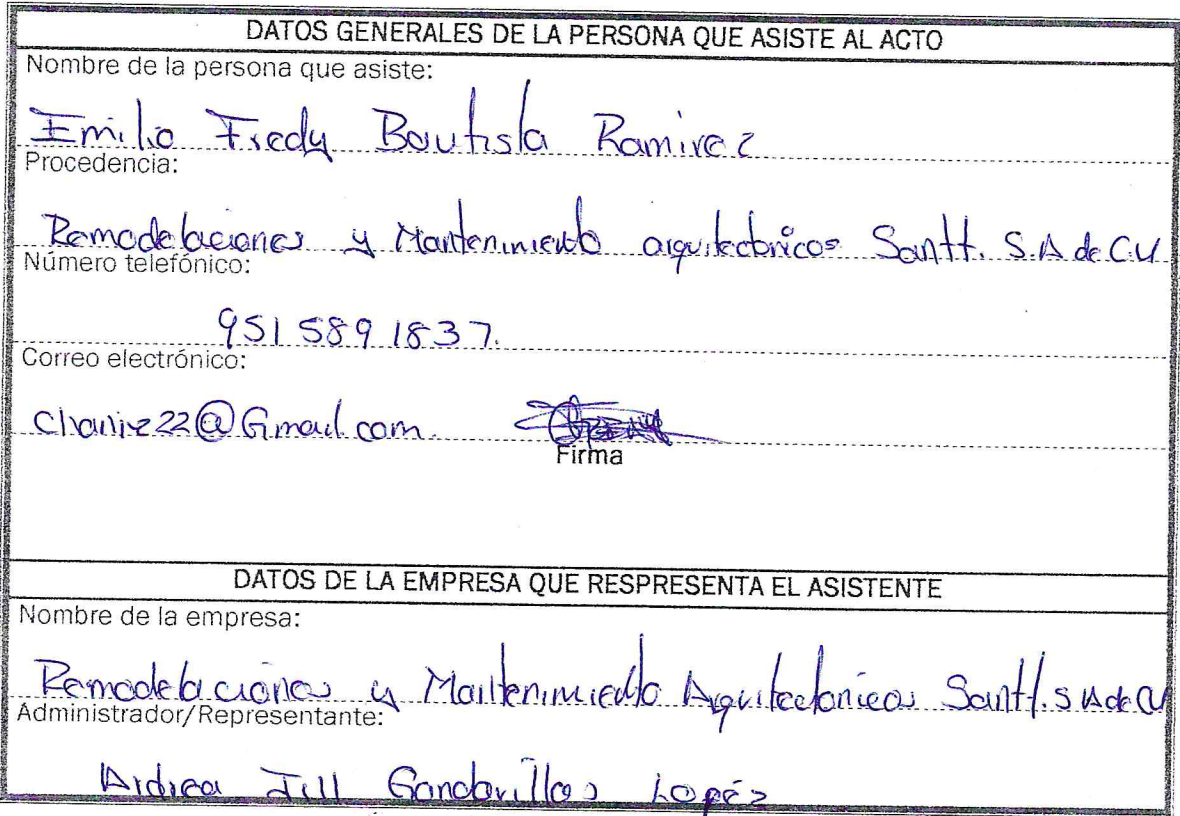 DATOS GENERALES DE LA PERSONA QUE ASISTE AL ACTO
Nombre de la persona que asiste:
Emilio Fredy Bautista Ramirez
Procedencia:
Remodelaciones y Mantenimiento arquitectonicos Santt. S.A de C.V
Número telefónico:
951 589 1837.
Correo electrónico:
@Gmail.com.
Firma
DATOS DE LA EMPRESA QUE RESPRESENTA EL ASISTENTE
Nombre de la empresa:
Remodelaciones y Mantenimiento Arquitectonicos Santt. S A de CV
Administrador/Representante:
Jill Gandarillas Lopéz